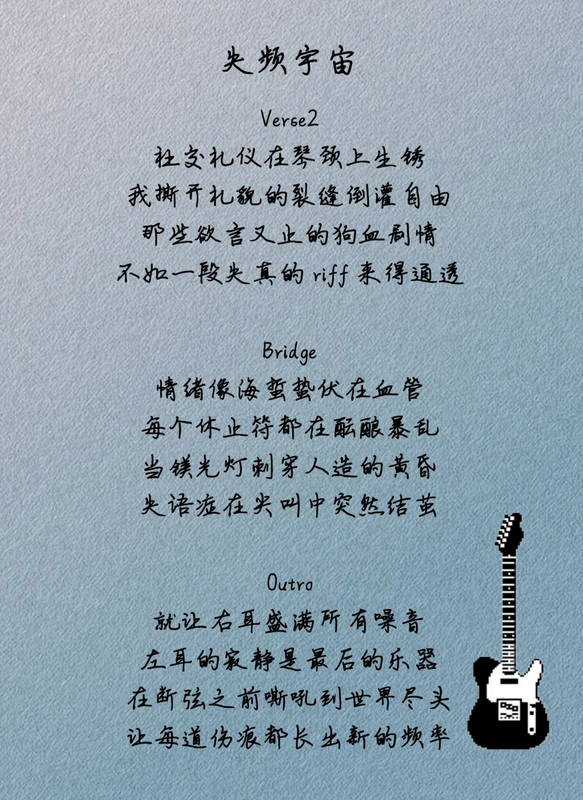 失频宇宙
Verse2
社交礼仪在琴颈上生锈
我撕开礼貌的裂缝倒灌自由
那些欲言又止的狗血剧情
不如一段失真的riff来得通透
Bridge
情绪像海蜇蛰伏在血管
每个休止符都在酝酿暴乱
当镁光灯刺穿人造的黄昏
失语症在尖叫中突然结茧
Outro
就让右耳盛满所有噪音
左耳的寂静是最后的乐器
在断弦之前嘶吼到世界尽头
让每道伤痕都长出新的频率